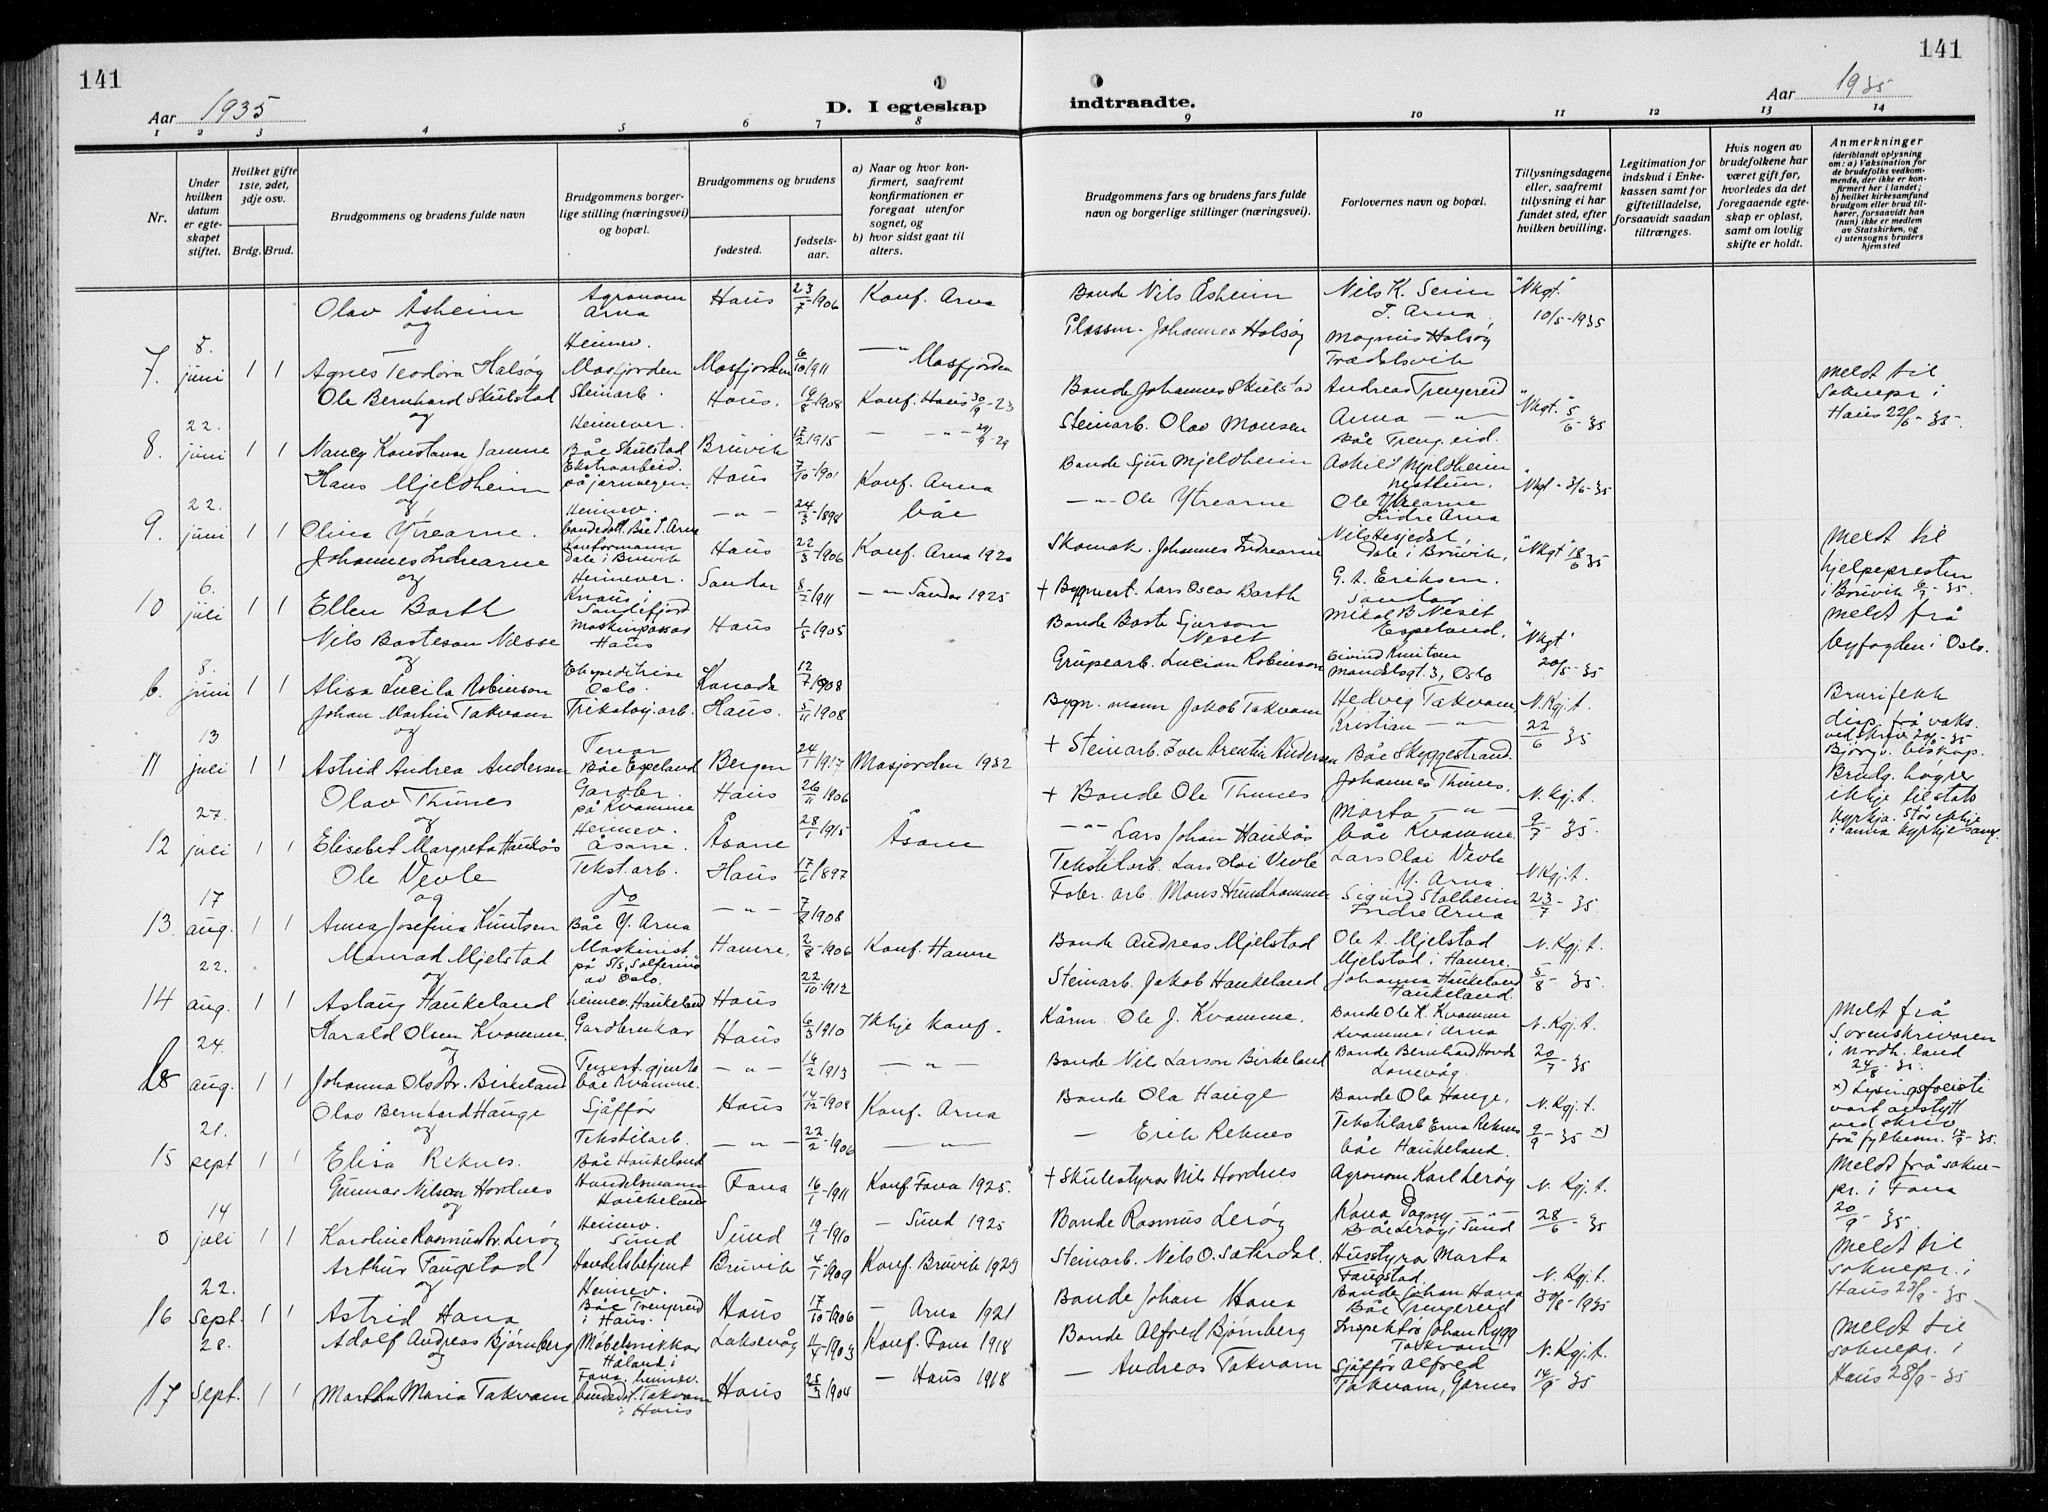 141
141
Aar 1935
D. I egteskap
indtraadte.
Aar 1935
1 2 3 4 5 6 7 8 9 10 11 12 13 14
Nr.
Under hvilken datum er egteskapet stiftet.
Hvilket gifte 1ste, 2det, 3dje osv.
Brdg. Brud.
Brudgommens og brudens fulde navn
Brudgommens borgerlige stilling (næringsvei) og bopæl.
Brudgommens og brudens
fødested.
fødselsaar.
a) Naar og hvor konfirmert, saafremt konfirmationen er foregaat utenfor sognet, og
b) hvor sidst gaat til alters.
Brudgommens fars og brudens fars fulde navn og borgerlige stillinger (næringsvei).
Forlovernes navn og bopæl.
Tillysningsdagene eller, saafremt tillysning ei har fundet sted, efter hvilken bevilling.
Legitimation for indskud i Enkekassen samt for giftetilladelse, forsaavidt saadan tiltrænges.
Hvis nogen av brudefolkene har været gift før, hvorledes da det foregaaende egteskap er opløst, samt om lovlig skifte er holdt.
Anmerkninger (deriblandt oplysning om: a) Vaksination for de brudefolks vedkommende, der ikke er konfirmert her i landet; b) hvilket kirkesamfund brudgom eller brud tilhører, forsaavidt han (hun) ikke er medlem av Statskirken, og c) utensogns bruders hjemsted
Olav Åsheim Agronom Arna Haus 23/7 1906 Konf. Arna Bonde Nils Åsheim Nils K. Seim "Nkgt" 10/5-1935
og
7. 8. juni 1 1 Agnes Teodora Halsøy Heimev. Masfjorden Masfjorden 6/10 1911 —"— Masfjorden Johannes Halsøy Magnus Halsøy
Ole Bernhard Skulstad Steinarb. Haus. 19/8 1908 Konf. Haus 30/9-23 Bonde Johannes Skulstad Andreas Trengereid "Nkgt." 5/6-35 Meldt til soknepr. i Haus 22/6-35.
og
8. 22. juni 1 1 Nancy Konstanse Heimever. Båe Skulstad Bruvik 17/2 1915 — —"— 29 Steinarb. Olav Monsen Arna —"— Båe Trengereid.
Hans Mjeldheim på jarnvegen. Haus 7/10-1901 Konf. Arna Bonde Sjur Mjeldheim Mjeldheim Nesttun. "Nkgt" 3/6-35
og
9. 22. juni 1 1 Olina Ytrearne. Heimev. —"— 24/3-1898 båe —"— Ole Ytrearne Ole Ytrearne Indre Arna
Johannes Indrearne Kontormann Dale i Bruvik Haus 22/3-1906 Konf. Arna 1920 Skomak. Johannes Indrearne Nils Hesjedal, Dale i Bruvik, "Nkgt" 18/6 35 Meldt til hjelpepresten i Bruvik 6/7-35.
og
10 6. juli 1 1 Ellen Barth Heimever. Sandefjord Sandar 1911 —"— Sandar 1925 + Lars Oscar Barth G. A. Eriksen. Sandar
Nils Basteson Nesse Haus Haus 1/5 1905 Bonde Baste Sjurson Neset Mikal B. Neset Espeland, "Nkgt" 20/5-35 Meldt frå byfogden i Oslo.
og
6. 8. juni 1 1 Alisa Lucila Robinson Oslo. Kanada 12/7 1908 Grupearb. Lucian Robinson Eivind Knutsen 3, Oslo
Johan Martin Takvam Trikotasj.arb. Haus. 5/11 1908 Bygn. mann Jakob Takvam Hedvig Takvam N. Kgj. t. 22/6 35 Brurifekk disp. frå vaks. ved skriv 20/6-35 Bjørgv. biskop.
og
11 13 juli 1 1 Astrid Andrea Andersen Båe Espeland Bergen 24/1 1917 Masfjorden 1932 + Steinarb. Iver Andersen Kristian —"— Båe Skyggestrand.
Olav Thunes Gardbr. på Kvamme Haus 26/11 1906 + Bonde Ole Thunes Johannes Thunes, N. Kgj. t. 9/7-35. Brudg. høyrer ikkje til stats kyrkja. Står ikkje i anna kyrkjesamf.
og
12 27. juli 1 1 Elisabet Margreta Haukås Heimev. Åsane Åsane 28/1 1915 Åsane —"— Lars Johan Haukås Marta —"— båe Kvamme.
Ole Vevle Tekst.arb. Haus 17/6 1897 Tekstilarb. Lars Olai Vevle Lars Olai Vevle Y. Arna N Kgj. t. 23/7-35.
og
13. 17 aug. 1 1 Anna Josefina Knutsen do Båe Y. Arna —"— 7/8 1908 Fabr. arb. Mons Hundhammer Sigurd Stalheim Indre Arna
Monrad Mjelstad Maskinist på S/S "Solferino" av Oslo. Hamre, 2/8 1906 Konf. Hamre Bonde Andreas Mjelstad Ole A. Mjelstad Mjelstad i Hamre. N. Kgj. t. 5/8-35.
og
14 22. aug. 1 1 Aslaug Haukeland heimev. Haukeland Haus 22/10-1912 Steinarb. Jakob Haukeland Johanna Haukeland Haukeland.
Harald Olsen Kvamme. Gardbrukar Haus 6/3 1910 Ikkje konf. Kårm. Ole J. Kvamme. Bonde Ole K. Kvamme Kvamme i Arna N. Kgj. t. 20/7-35 Meldt frå Sorenskrivaren i Nordh. land 24/8-35.
og
24. aug. 1 1 Johanna Olsdtr. Birkeland Tenest.gjenta båe Kvamme. —"— 16/2 1913 —"— Bonde Nils Larson Birkeland Bonde Bernhard Hovde Lonevåg.
Olav Bernhard Hauge Sjåfför Haus 14/12-1908 Konf. Arna Bonde Ola Hauge Bonde Ola Hauge, N. Kgj. t. 9/9-35 x) x) vart avstytt ved skriv frå fylkesm. 14/9-35.
og
15 21. sept 1 1 Elisa Reknes. Tekstilarb. Båe Haukeland —"— 22/2-1906 —"— — Erik Reknes Tekstilarb Erna Reknes båe Haukeland.
Gunnar Nilsen Hordnes Handelsmann Haukeland Fana 16/1-1911 Konf. Fana 1925. + Skulestyrar Nils Hordnes Agronom Karl Lerøy N. Kgj. t. 28/6-35 Meldt frå sokne-pr. i Fana 20/9-35.
og
0 14 juli 1 1 Karoline Rasmusdtr. Lerøy Heimev. Sund Sund 19/1-1910 — Sund 1925 Bonde Rasmus Lerøy Kona Dagny —"— Båe Lerøy i Sund
Arthur Faugstad Handelsbetjent Bruvik 4/1-1909 Konf. Bruvik 1923 Steinarb. Nils O. Sæterdal. Husstyra Marta Faugstad. N. Kgj. t. 30/8-1935 Meldt til soknepr. i Haus 23/9-35
og
16 22. Sept. 1 1 Astrid Hana Heimev. Båe Trengereid i Haus. Haus 17/10-1906 — Arna 1921 Bonde Johan Hana Bonde Johan Hana Båe Trengereid
Adolf Andreas Bjørnberg Møbelsnikkar Håland i Fana Laksevåg 11/4-1903 Konf. Fana 1918 Bonde Alfred Bjørnberg Inspektør Johan Rygg Takvam N. Kgj. t. 14/9-35 Meldt til sokneprest i Haus 28/9-35
og
17 28. Sept. 1 1 Martha Maria Takvam heimev. bondedot. Takvam i Haus Haus 25/3 1904 — Haus 1918 — Andreas Takvam Sjåfför Alfred Takvam, Garnes